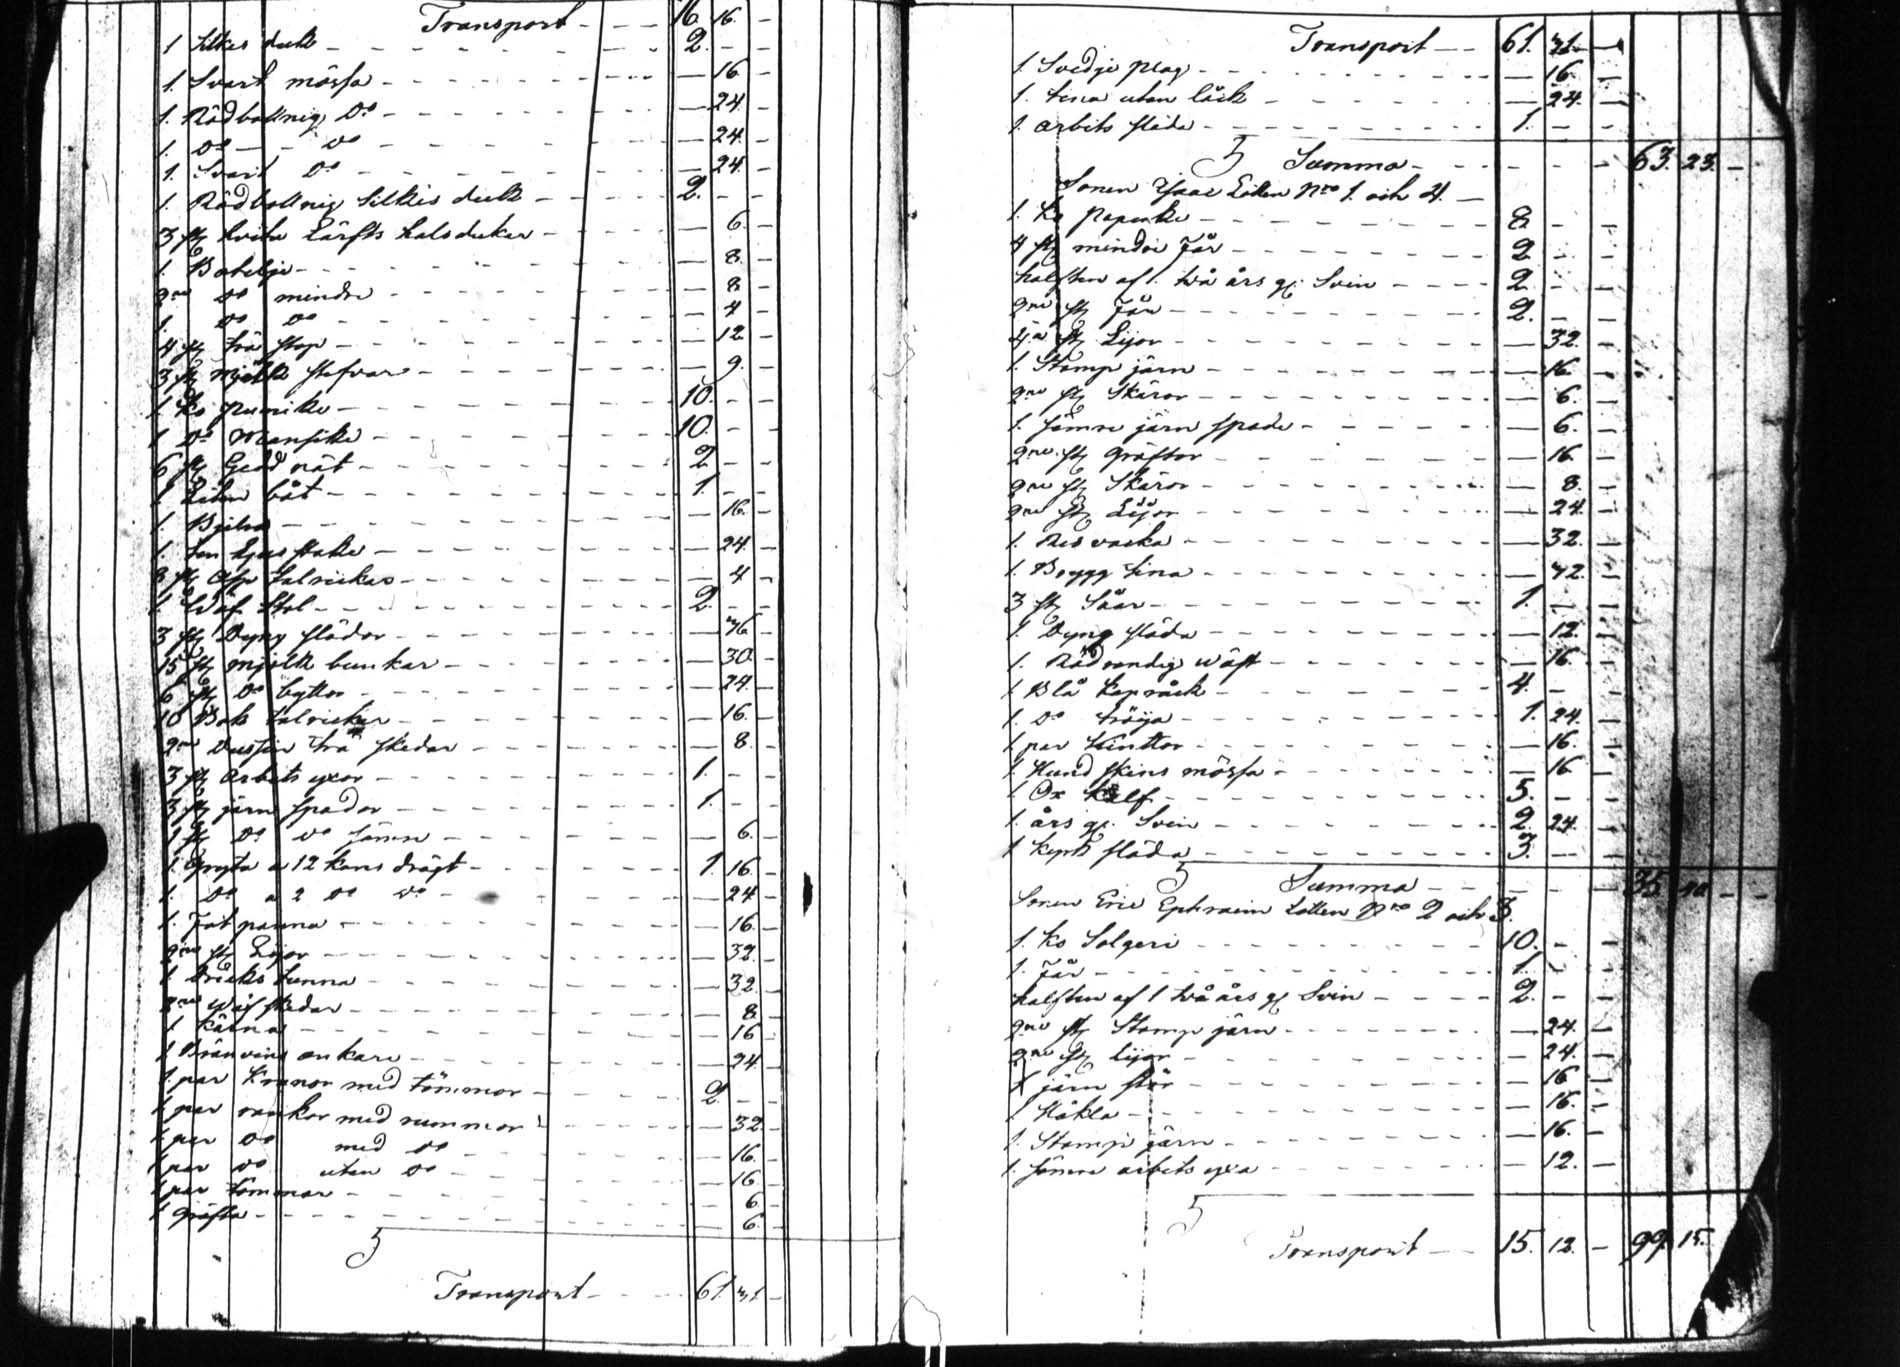 Transport - 16. 16. -
1 Silkes duk - 2. - -
1 Svart mössa - — 16 -
1. Rödbottnig Do - — 24. -
1. Do - do - — 24. -
1. Svart Do - — 24. -
1. Rödbottnig Silkes duk - 2. - -
3 st hvita Lärfts halsdukar - — 6. -
1. Botelje - — 8. -
2ne do mindre - — 8 -
1. do do - — 4 -
4 st trä stop - — 12 -
3 st mjölk stefvor - — 9. -
1 Ko Punike - 10. - -
1 Do Mansike - 10. - -
6 st Gedd nät - 2 - -
1 Liten båt - 1. - -
1. Bjelra - — 16. -
1. ten ljus stake - — 24. -
3 st Asp talrickar - — 4 -
1 Wäf Stol - 2. - -
3 st Dyng slädor - — 36 -
15 st mjölk bunkar - — 30. -
6 st Do byttor - — 24. -
10 Bok talrickar - — 16. -
2ne dussin trä skedar - — 8. -
3 st Arbets yxor - 1. - -
3 st järn spador - 1. - -
1 st Do do sämre - — 6. -
1 gryta a 12 kans drägt - 1. 16. -
1. Do a 2 Do do - — 24 -
1. Fat panna - — 16. -
2ne st Lijor - — 32. -
1 Dricks tunna - — 32. -
2ne wäf skedar - — 8. -
1 Kärna - — 16 -
1 Bränvins ankare - — 24. -
1 par Kranor med tömmor - 2. - -
1 par rankor med rummor - — 32. -
1 par Do med do - — 16. -
1 par do utan do - — 16. -
1 par tömmar - — 6 -
1 gräfta - — 6. -
Transport - 61. 41. -
Transport - 61. 41. -
1. Svedje plog - — 16. -
1. tina utan låck - — 24. -
1. arbets släda - 1. - -
Summa - 63. 23. -
Sonen Isaac Lotten No 1. och 4. -
1. Ko Papuke - 8. - -
4 st mindre Får - 2 - -
halften af 1. två års gl. Svin - 2 - -
2ne st Får - 2. - -
4a st Lijor - — 32. -
1. Stamp järn - — 16. -
2ne st Skäror - — 6. -
1. sämre järn spade - — 6. -
2ne st gräftor - — 16. -
2ne st Skäror - — 8. -
2ne st Lijor - — 24. -
1. Res vacka - — 32. -
1. Brygg tina - — 42. -
3 st Såar - 1. - -
1. Dyng släda - — 12. -
1. Rödrandig wäst - — 16. -
1 Blå kapråck - 4. - -
1. Do tröija - 1. 24. -
1 par kinttor - — 16. -
1. Hund skins mössa - — 16 -
1 Ox kalf - 5. - -
1. års gl. Svin - 2. 24. -
1 Kyrk släda - 3. - -
Summa - 35. 40 - -
Sonen Eric Ephraim Lotten No 2 och 3.
1. Ko Solgeri - 10. - -
1. Får - 1. - -
halften af 1 två års gl Svin - 2. - -
2ne st Stamp järn - — 24. -
2ne st Lijor - — 24. -
1 järn stör - — 16 -
1 Häkla - — 16. -
1. Stamp järn - — 16. -
1. sämre arbets yxa - — 12. -
Transport - 15. 12. - 99. 15.